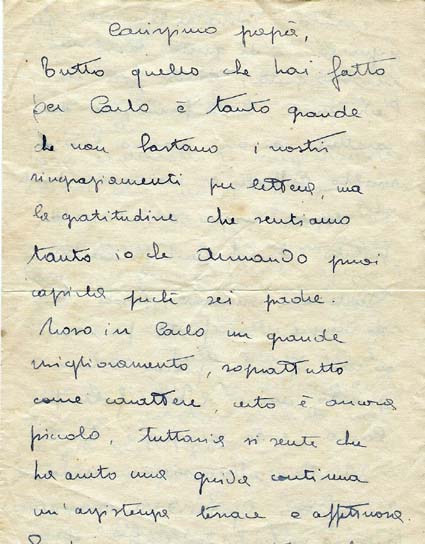 Carissimo papà,
Tutto quello che hai fatto
per Carlo è tanto grande
che non bastano i nostri
ringraziamenti per lettera, ma
la gratitudine che sentiamo
tanto io che Armando puoi
capirla perchè sei padre.
Trovo in Carlo un grande
miglioramento, soprattutto
come carattere, certo è ancora
piccolo, tuttavia si sente che
ha avuto una guida continua
un'assistenza tenace e affettuosa.